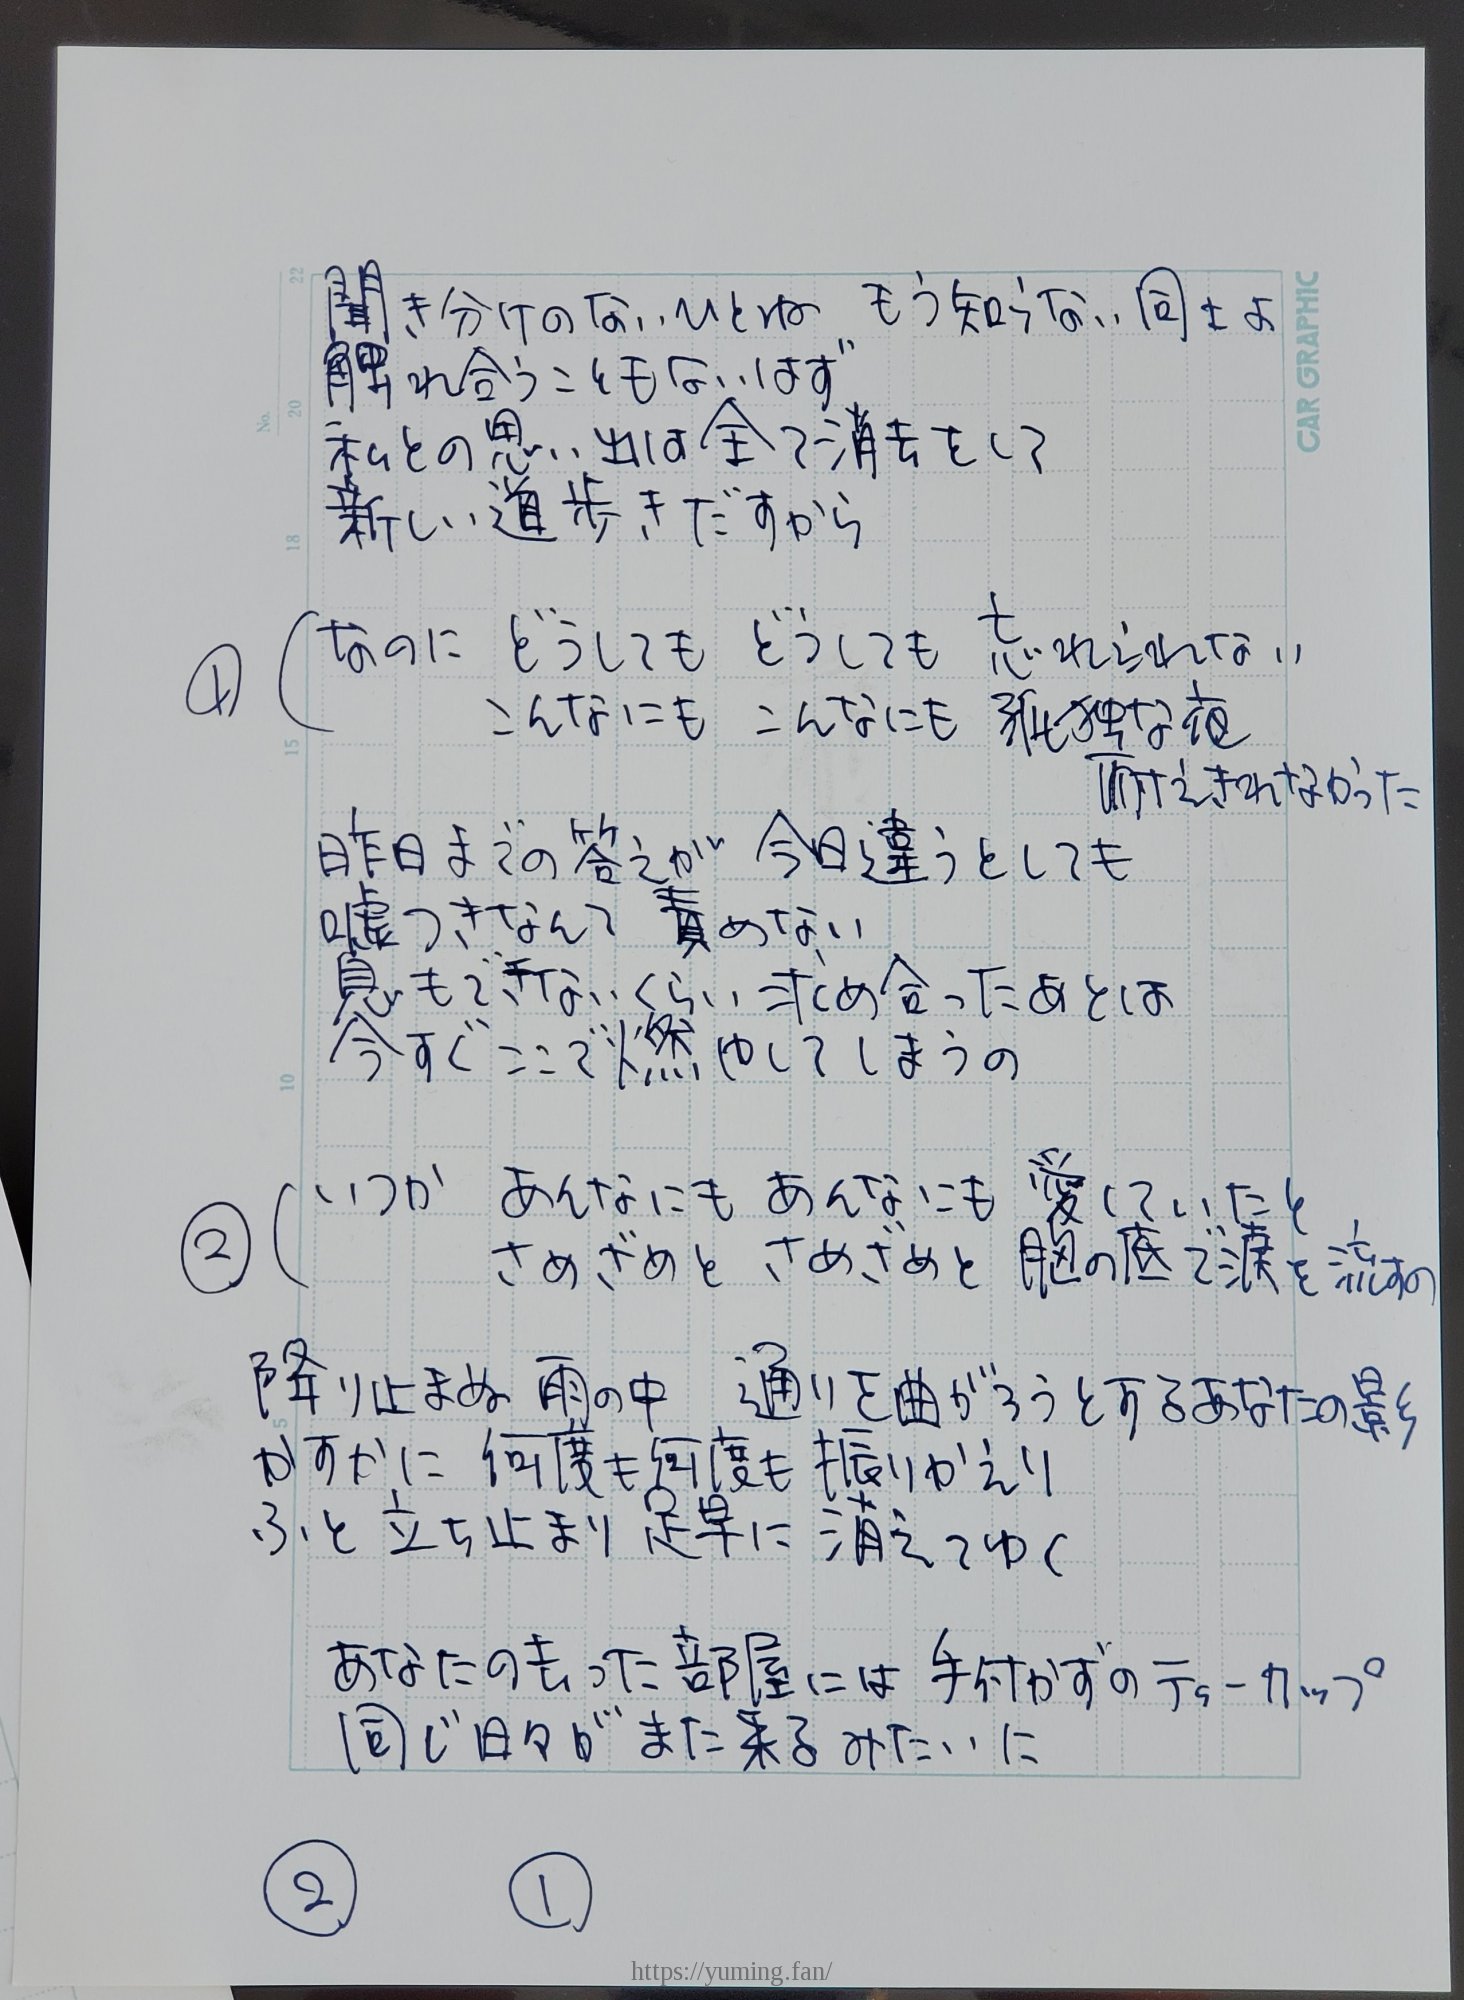 聞き分けのないひとね もう知らない同士よ
触れ合うこともないはず
私との思い出は全て消去をして
新しい道歩きだすから
① なのに どうしても どうしても 忘れられない
こんなにも こんなにも 孤独な夜
耐えきれなかった
昨日までの答えが 今日違うとしても
嘘つきなんて 責めない
息もできないくらい 求め合ったあとは
今すぐここで燃やしてしまうの
② いつか あんなにも あんなにも 愛していたと
さめざめと さめざめと 胸の底で涙を流すの
降り止まぬ 雨の中 通りを曲がろうとするあなたの影を
かすかに 何度も何度も 振りかえり
ふと 立ち止まり 足早に 消えてゆく
あなたの去った部屋には 手付かずのティーカップ
同じ日々が また来るみたいに
② ①
CAR GRAPHIC
No.
22
20
18
15
10
5
https://yuming.fan/